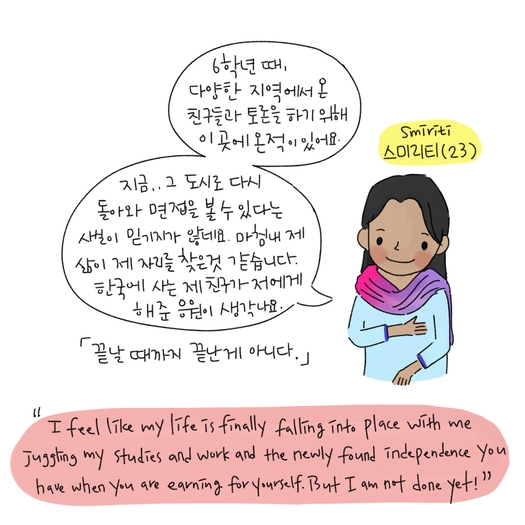 6학년 때,
다양한 지역에서 온
친구들과 토론을 하기 위해
이 곳에 온적이 있어요.
Smiriti
스미리티(23)
지금.. 그 도시로 다시
돌아와 면접을 볼 수 있다는
사실이 믿기지가 않네요. 마침내 제
삶이 제 자리를 찾은것 같습니다.
한국에 사는 제 친구가 저에게
해 준 응원이 생각나요.
「끝날 때까지 끝난게 아니다.」
"I feel like my life is finally falling into place with me
juggling my studies and work and the newly found independence you
have when you are earning for yourself. But I am not done yet!"